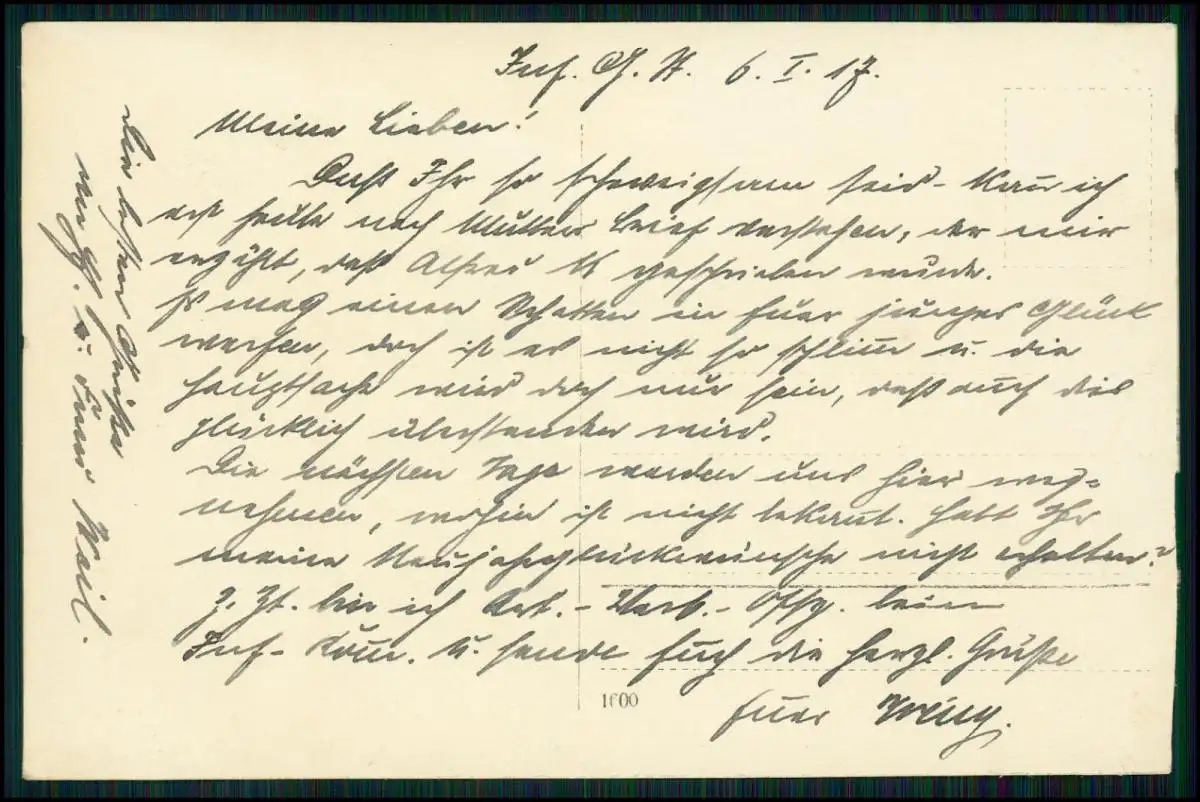 Inf. G. H. 6. I. 17.
Meine Lieben!
Daß Ihr so schweigsam seid - kann ich
erst heute nach Mutters Brief verstehen, der mir
erzählt, daß Alfred K geschrieben wurde.
Es mag einen Schatten in Euer junges Glück
werfen, doch ist es nicht so schlimm u. die
Hauptsache wird doch nur sein, daß auch dies
glücklich überstanden wird.
Die nächsten Tage werden uns hier weg=
nehmen, wohin ist nicht bekannt. Habt Ihr
meine Neujahrsglückwünsche nicht erhalten?
Z. Zt. bin ich Art. - Verb. - Offz. beim
Inf - Kom. u. sende Euch die herzl. Grüße
Euer Willy.
1600
Die besten Grüße
an u. Keil.